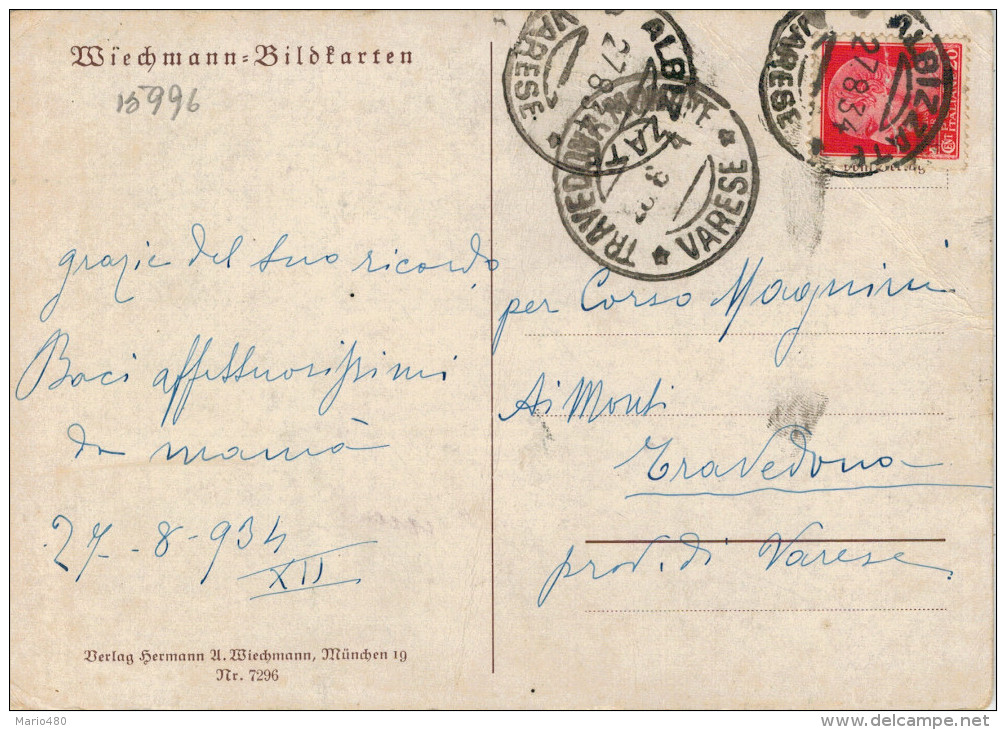 Wiechmann-Bildkarten
15996
grazie del suo ricordo
Baci affettuosissimi
da mamà
27-8-934
XII
Verlag Hermann A. Wiechmann, München 19
Nr. 7296
ALBIZZATE
27 8 34
VARESE
TRAVEDONA
VARESE
ALBIZZATE
27 8 34
VARESE
ITALIANE 20
CENT
per Corso Magnini
Ai Monti
Travedona
prov. di Varese
Mario480
delcampe.net